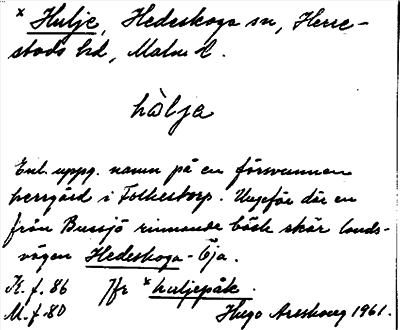 x Hulje, Hedeskoga sn, Herre-
stads hd, Malm. l.
hàlja
Enl. uppg. namn på en försvunnen
herrgård i Folkestorp. Ungefär där en
från Bussjö rinnande bäck skär lands-
vägen Hedeskoga - Öja.
K. f. 86 Jfr x huljepåk.
M. f. 80 Hugo Areskoug 1961.